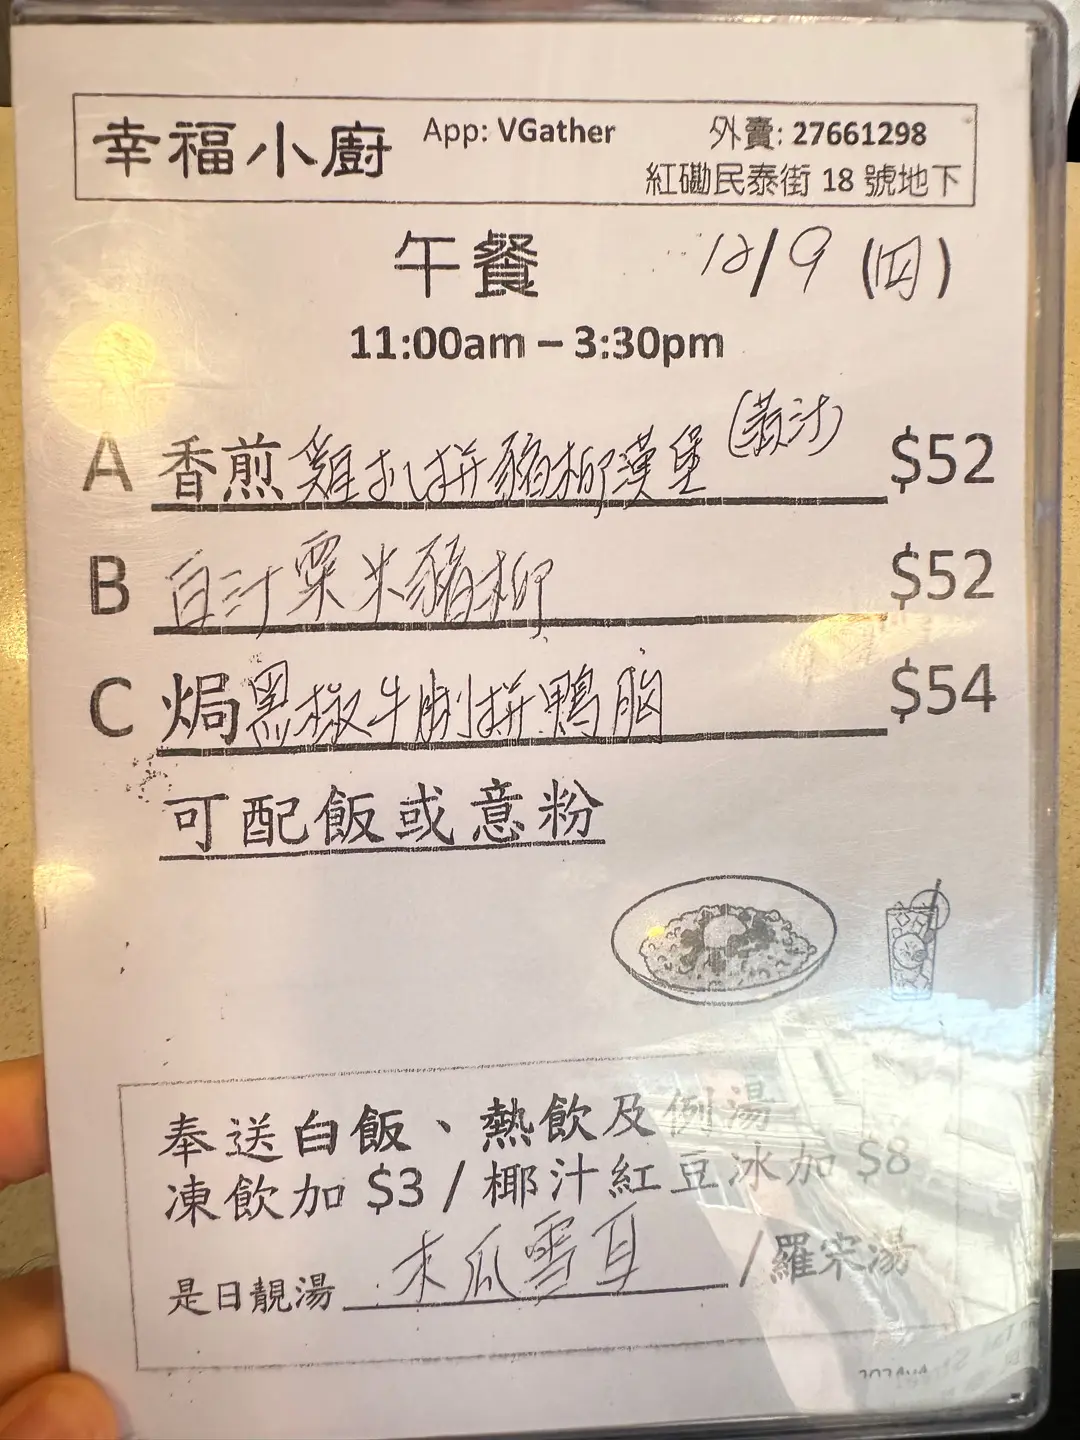 幸福小廚 App: VGather 外賣: 27661298
紅磡民泰街 18 號地下
午餐 12/9 (四)
11:00am – 3:30pm
A 香煎雞扒拼豬柳漢堡 $52
B 白汁粟米豬柳 $52
C 焗黑椒牛脷拼鴨胸 $54
可配飯或意粉
奉送白飯、熱飲及例湯
凍飲加 $3 / 椰汁紅豆冰加 $8
是日靚湯 木瓜雪耳 / 羅宋湯